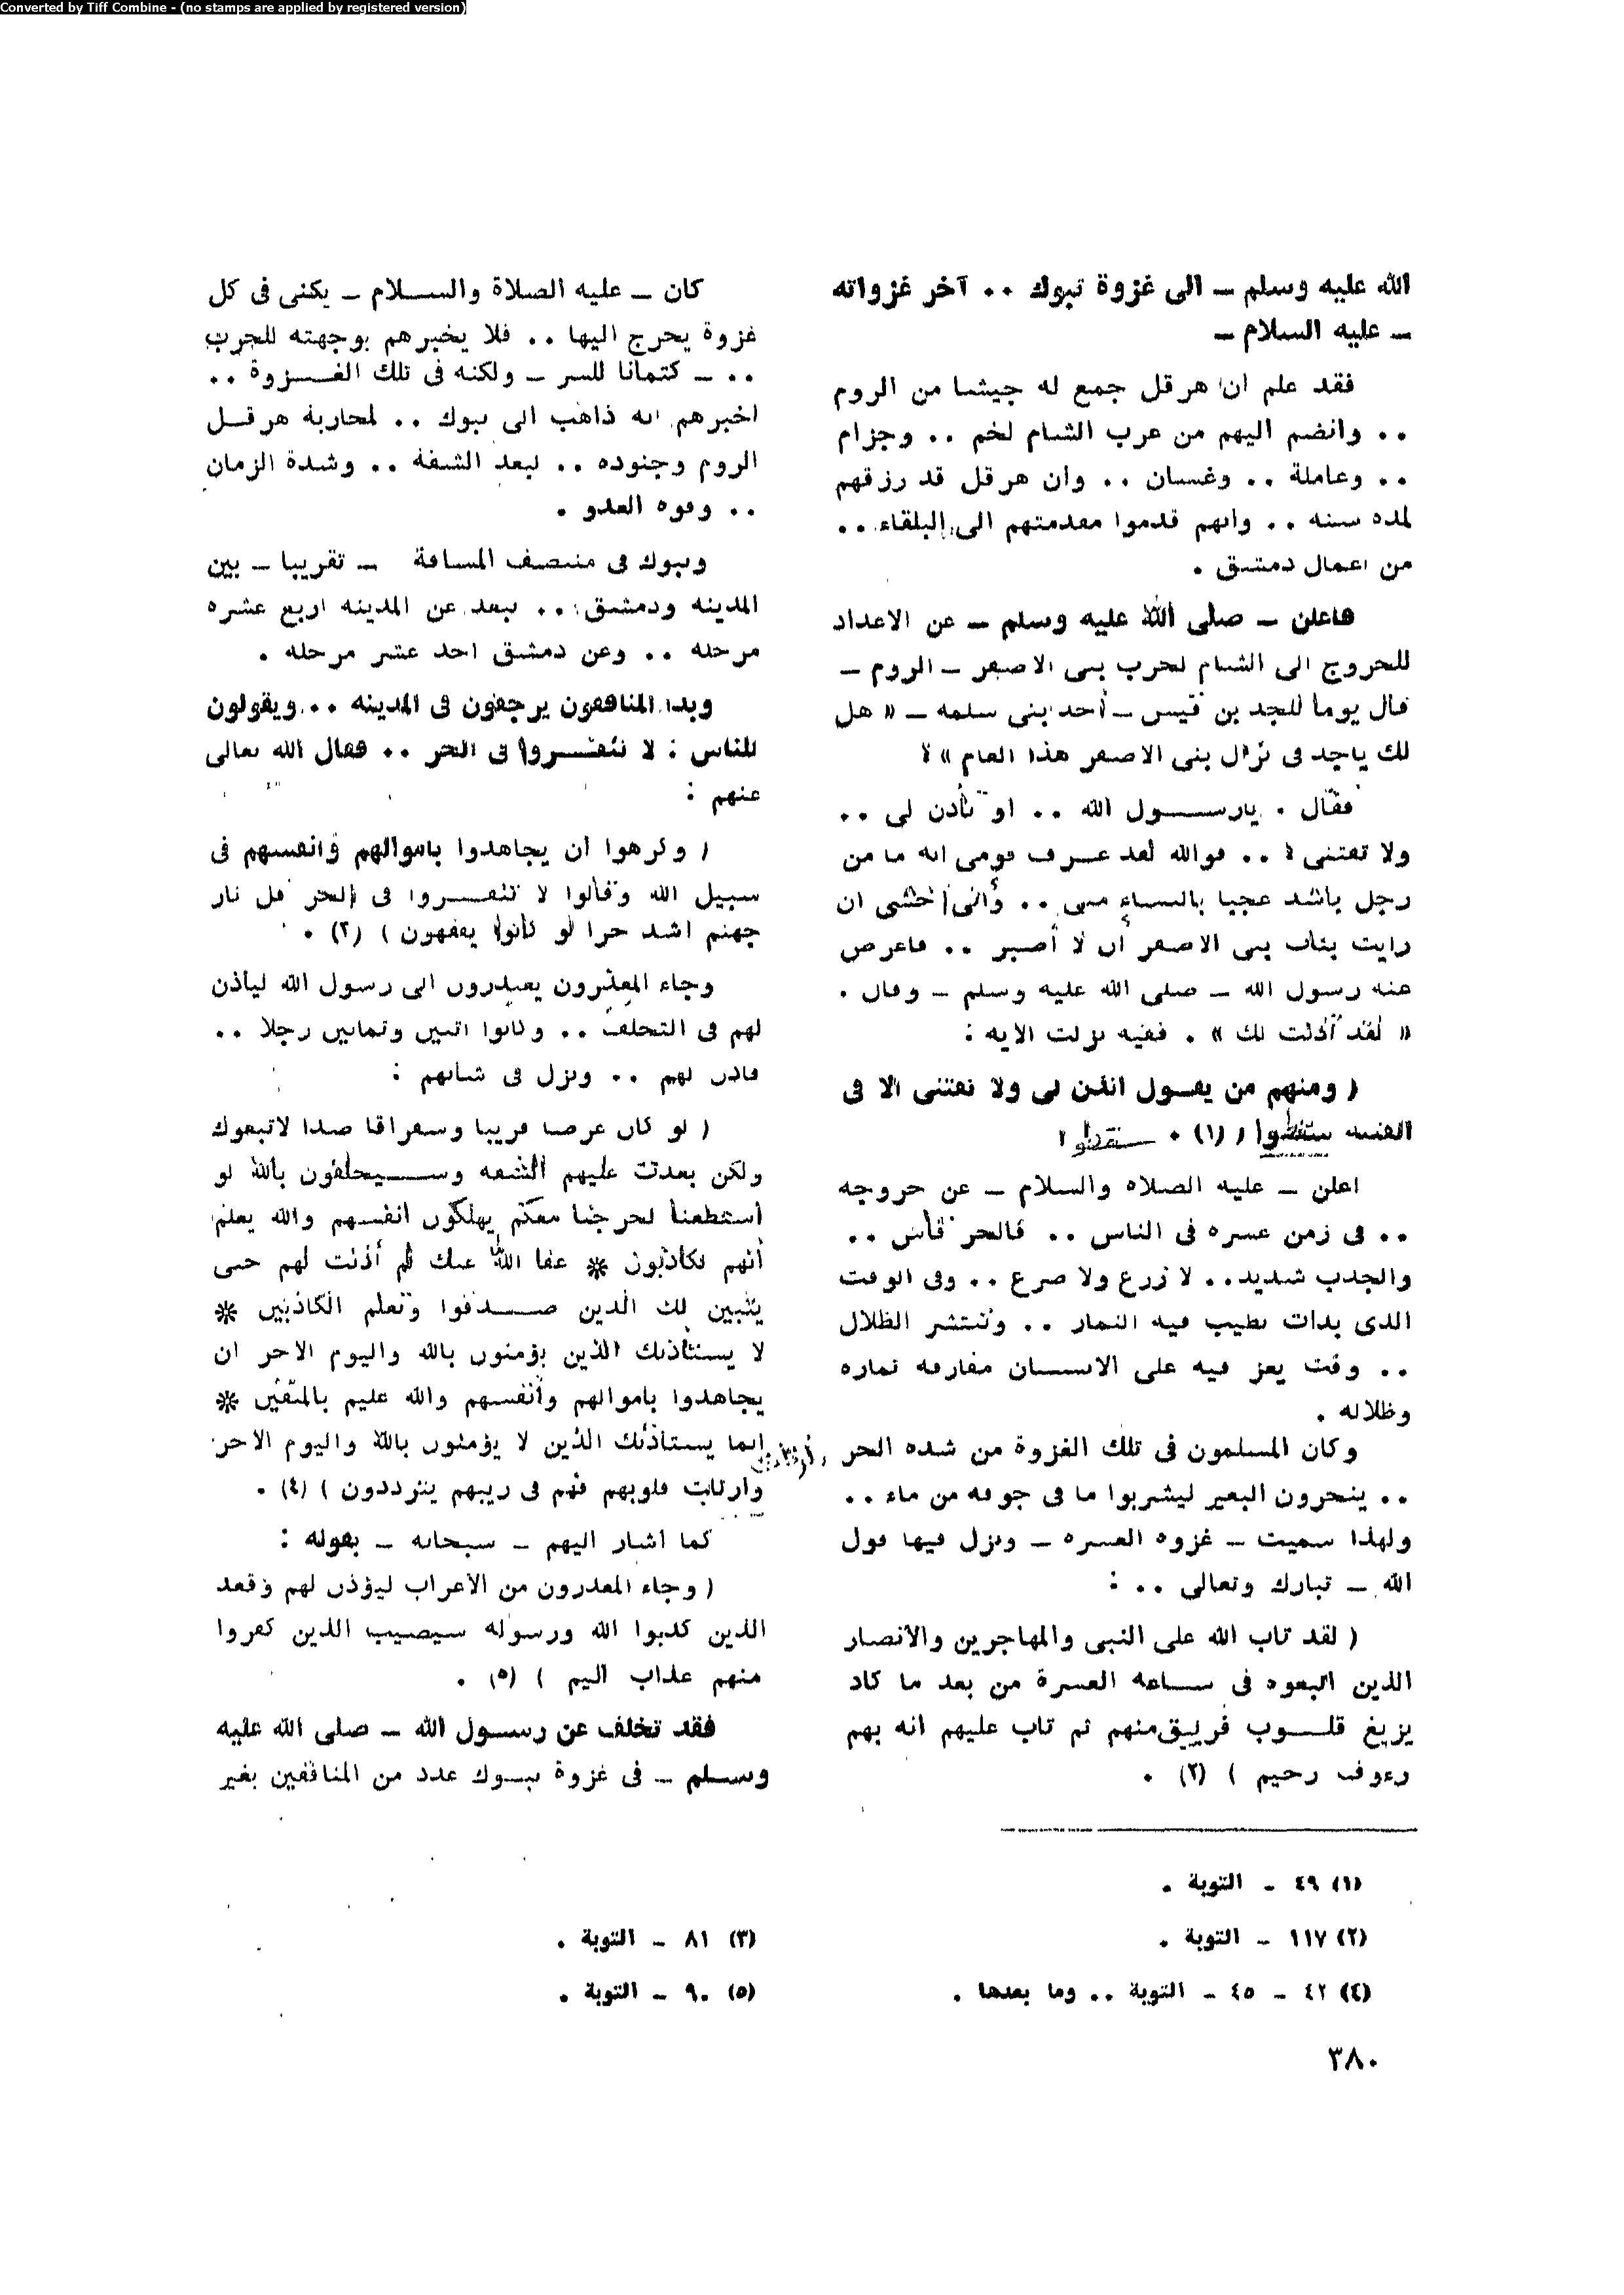 Converted by Tiff Combine - (no stamps are applied by registered version)
الله عليه وسلم – الى غزوة تبوك .. آخر غزواته
– عليه السلام –
فقد علم ان هرقل جمع له جيشا من الروم
.. وانضم اليهم من عرب الشام لخم .. وجزام
.. وعاملة .. وغسان .. وان هرقل قد رزقهم
لمدة سنة .. وانهم قدموا مقدمتهم الى البلقاء ..
من اعمال دمشق .
فاعلن – صلى الله عليه وسلم – عن الاعداد
للخروج الى الشام لحرب بنى الاصفر – الروم –
قال يوما للجد بن قيس – أحد بنى سلمه – « هل
لك ياجد فى نزال بنى الاصفر هذا العام » ؟
فقال . يارسول الله .. او تأذن لى ..
ولا تفتنى ؟ .. فوالله لقد عرف قومى انه ما من
رجل باشد عجبا بالنساء منى .. وأنى أخشى ان
رايت بنات بنى الاصفر أن لا أصبر .. فاعرض
عنه رسول الله – صلى الله عليه وسلم – وقال .
« لقد أذنت لك » . ففيه نزلت الآية :
( ومنهم من يقول ائذن لى ولا تفتنى الا فى
الفتنة سقطوا ) (١) . سقطوا
اعلن – عليه الصلاه والسلام – عن خروجه
.. فى زمن عسره فى الناس .. فالحر قأس ..
والجدب شديد .. لا زرع ولا ضرع .. وفى الوقت
الذى بدات تطيب فيه الثمار .. وتنتشر الظلال
.. وقت يعز فيه على الانسان مفارقة ثماره
وظلاله .
وكان المسلمون فى تلك الغزوة من شده الحر
.. ينحرون البعير ليشربوا ما فى جوفه من ماء ..
ولهذا سميت – غزوه العسره – ونزل فيها قول
الله – تبارك وتعالى .. :
( لقد تاب الله على النبى والمهاجرين والانصار
الذين اتبعوه فى ساعه العسرة من بعد ما كاد
يزيغ قلوب فريق منهم ثم تاب عليهم انه بهم
رءوف رحيم ) (٢) .
كان – عليه الصلاة والسلام – يكنى فى كل
غزوة يخرج اليها .. فلا يخبرهم بوجهته للحرب
.. – كتمانا للسر – ولكنه فى تلك الغزوة ..
اخبرهم انه ذاهب الى تبوك .. لمحاربة هرقل
الروم وجنوده .. لبعد الشقة .. وشدة الزمان
.. وقوه العدو .
وتبوك فى منتصف المسافة – تقريبا – بين
المدينه ودمشق .. تبعد عن المدينه اربع عشره
مرحله .. وعن دمشق احد عشر مرحله .
وبدا المنافقون يرجفون فى المدينه .. ويقولون
للناس : لا تنفروا فى الحر .. فقال الله تعالى
عنهم :
( وكرهوا ان يجاهدوا باموالهم وانفسهم فى
سبيل الله وقالوا لا تنفروا فى الحر قل نار
جهنم اشد حرا لو كانوا يفقهون ) (٣) .
وجاء المعذرون يعتذرون الى رسول الله ليأذن
لهم فى التخلف .. وكانوا اثنين وثمانين رجلا ..
فاذن لهم .. ونزل فى شانهم :
( لو كان عرضا قريبا وسفراقا صدا لاتبعوك
ولكن بعدت عليهم الشقه وسيحلفون بالله لو
أستطعنا لخرجنا معكم يهلكون انفسهم والله يعلم
أنهم لكاذبون * عفا الله عنك لم أذنت لهم حتى
يتبين لك الذين صدقوا وتعلم الكاذبين *
لا يستأذنك الذين يؤمنون بالله واليوم الاخر ان
يجاهدوا باموالهم وأنفسهم والله عليم بالمتقين *
انما يستاذنك الذين لا يؤمنون بالله واليوم الاخر
وارتابت قلوبهم فهم فى ريبهم يترددون ) (٤) .
كما اشار اليهم – سبحانه – بقوله :
( وجاء المعذرون من الاعراب ليؤذن لهم وقعد
الذين كذبوا الله ورسوله سيصيب الذين كفروا
منهم عذاب اليم ) (٥) .
فقد تخلف عن رسول الله – صلى الله عليه
وسلم – فى غزوة تبوك عدد من المنافقين بغير
(١) ٤٩ – التوبة .
(٢) ١١٧ – التوبة .
(٣) ٨١ – التوبة .
(٤) ٤٢ – ٤٥ – التوبة .. وما بعدها .
(٥) ٩٠ – التوبة .
٣٨٠